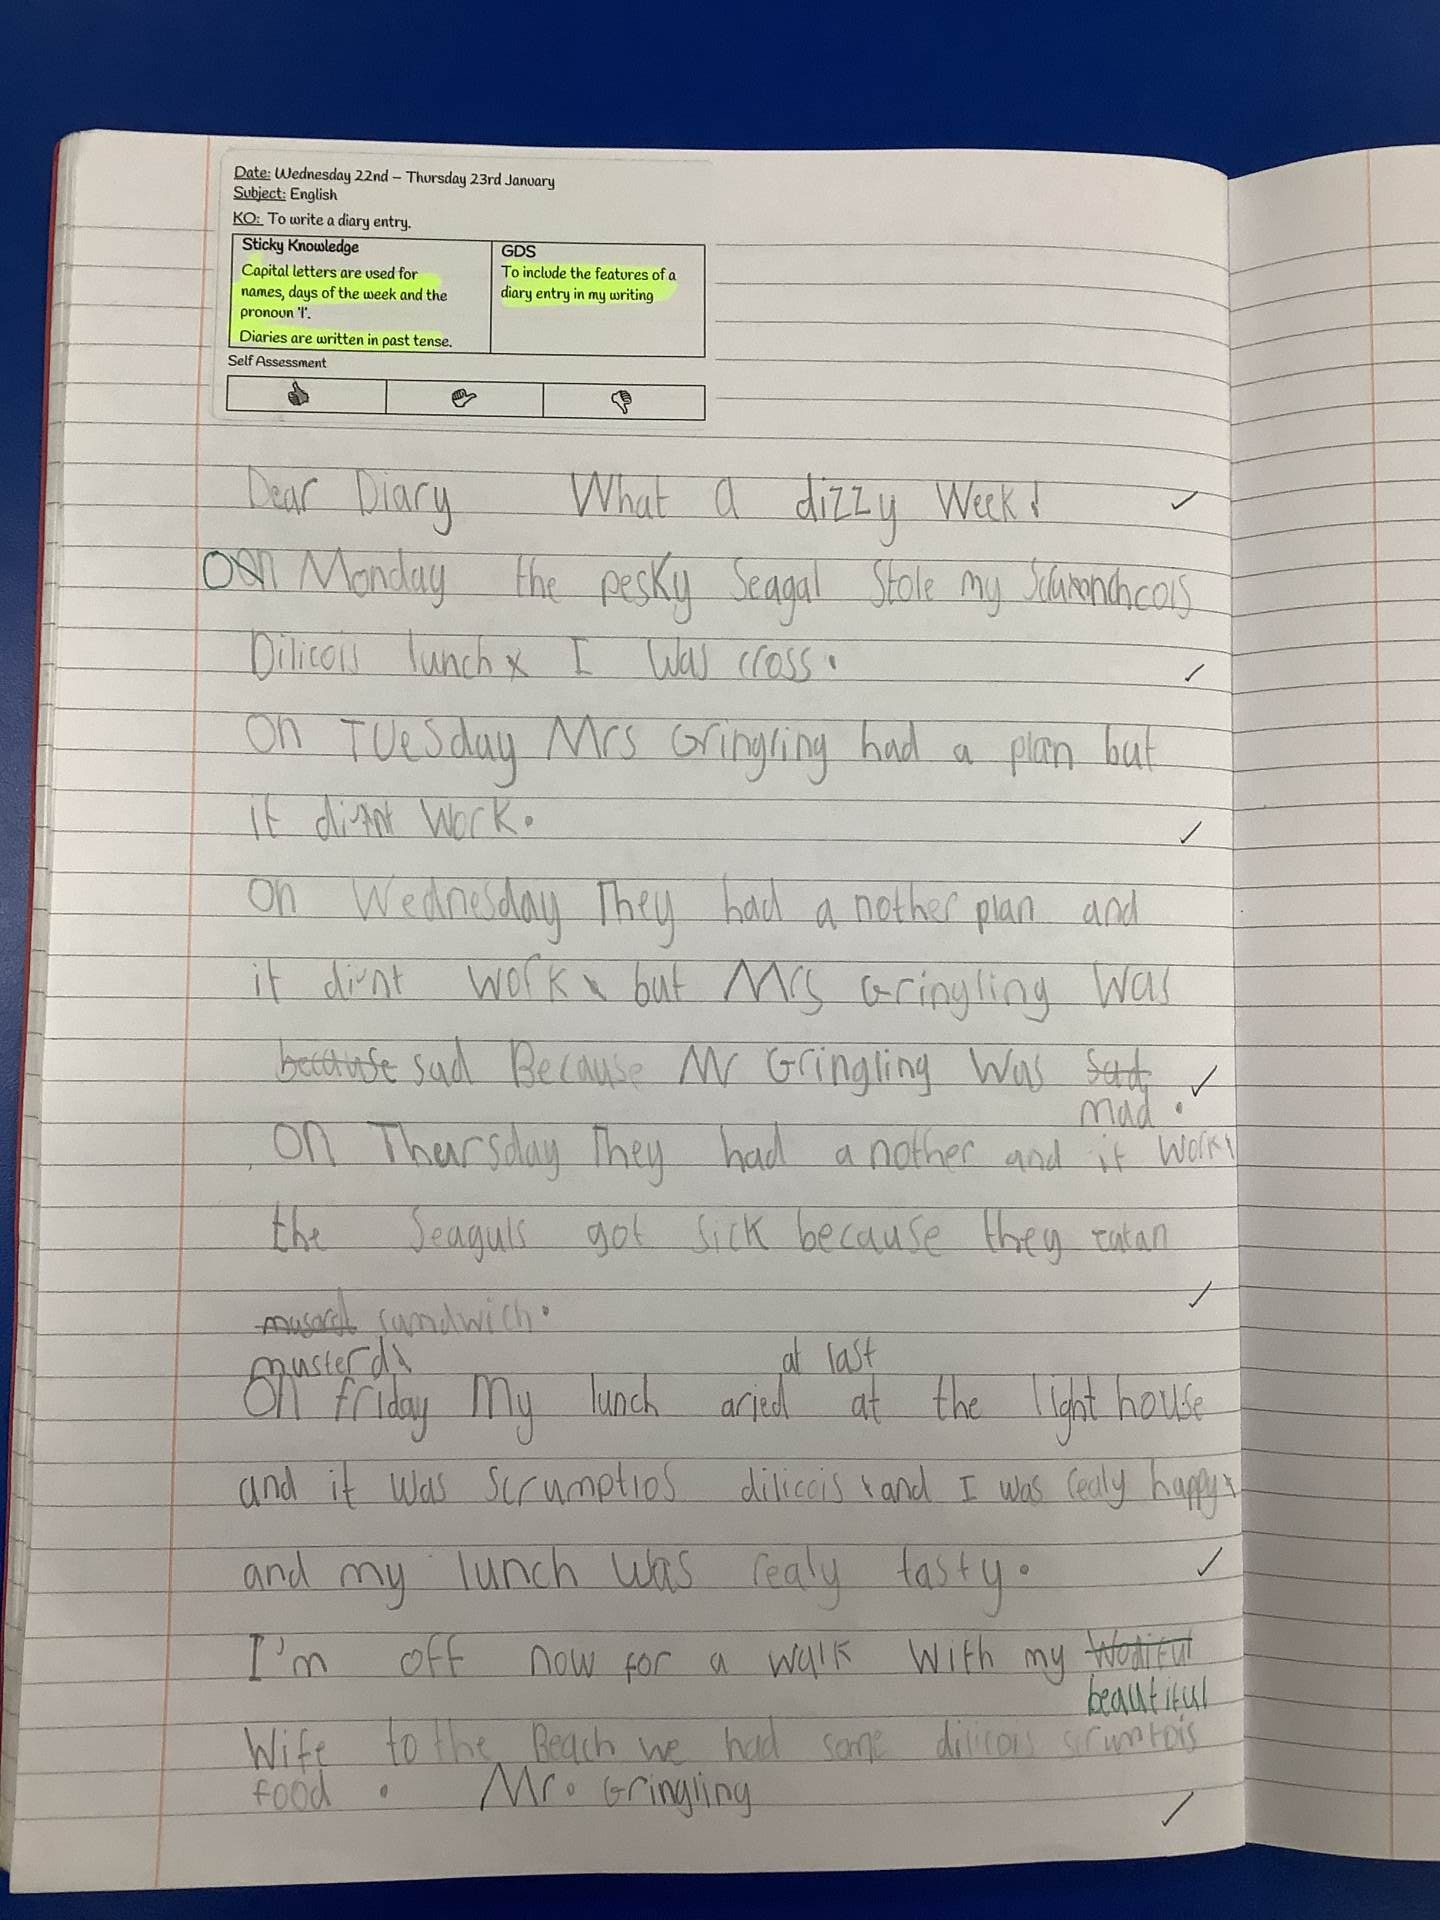 Date: Wednesday 22nd – Thursday 23rd January
Subject: English
KO: To write a diary entry.
Sticky Knowledge
Capital letters are used for
names, days of the week and the
pronoun 'I'.
Diaries are written in past tense.
GDS
To include the features of a
diary entry in my writing
Self Assessment
Dear Diary What a dizzy Week!
On Monday the pesky Seagal Stole my
Dilicois lunch I was cross.
On Tuesday Mrs Gringling had a plan but
it work.
On Wednesday They had a nother plan and
it didnt work but Mrs Gringling was
because sad Because Mr Gringling was sad
mad.
On Thursday They had a nother and it work
the Seaguls got sick because they eatan
sandwich.
musterd
at last
On friday My lunch aried at the light house
and it was scrumptios dilicois and I was realy happy
and my lunch was realy tasty.
I'm off now for a walk with my
beautiful
Wife to the Beach we had some dilicois scrumtois
food. Mr. Gringling